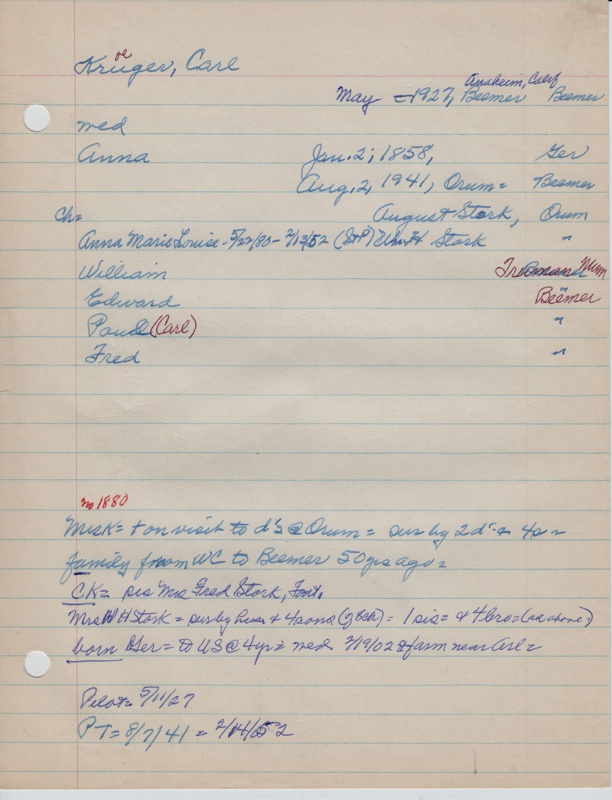 oe
Krüger, Carl
Anaheim, Calif
May - 1927, Beemer Beemer
med
Anna Jan. 2, 1858, Ger
Aug. 2, 1941, Orum = Beemer
Ch= August Stork, Orum
Anna Marie Louise - 5/22/80 - 2/13/52 (St P) Wm H Stork "
William Truman Minn
Edward Beemer
Paul (Carl) "
Fred "
m 1880
Mrs K = + on visit to d's @ Orum = sur by 2d + 4s =
family from WC to Beemer 50 yrs ago =
CK = sis Mrs Fred Stork, Font.
Mrs W H Stork = sur by hus + 4 sons = 1 sis = + 4 bro = (as above)
born Ger = to US @ 4 yr = med 2/19/02 + farm near Arl =
Pilot = 5/11/27
PT = 8/7/41 = 2/14/52